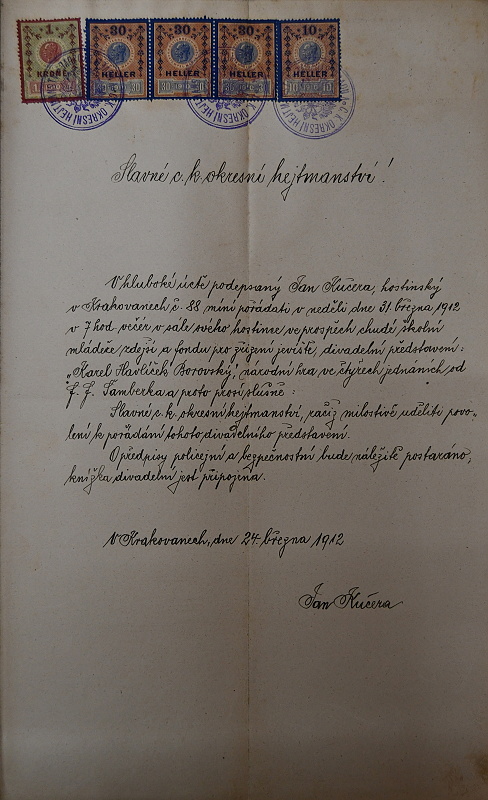 1 30 30 30 10
KRONE HELLER HELLER HELLER HELLER
Slavné c. k. okresní hejtmanství!
V hluboké úctě podepsaný Jan Kučera, hostinský
v Krakovanech č. 88 míní pořádati v neděli dne 31. března 1912
v 7 hod. večer v sále svého hostince ve prospěch chudé školní
mládeže zdejší a fondu pro zřízení jeviště, divadelní představení:
„Karel Havlíček Borovský", národní hra ve čtyřech jednáních od
F. F. Šamberka a proto prosí slušně:
Slavné c. k. okresní hejtmanství, račiž milostivě uděliti povo-
lení k pořádání tohoto divadelního představení.
O předpisy policejní a bezpečnostní bude náležitě postaráno,
knížka divadelní jest připojena.
V Krakovanech, dne 24. března 1912
Jan Kučera